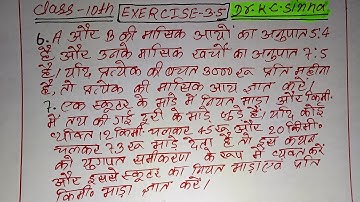 class-10th EXERCISE-3.5 Dr. K.C. Sinha
6. A और B की मासिक आयों का अनुपात 5:4
है और उनके मासिक खर्चों का अनुपात 7:5
है। यदि प्रत्येक की बचत 3000 रु० प्रति महीना
है, तो प्रत्येक की मासिक आय ज्ञात करें।
7. एक स्कूटर के भाड़े में नियत भाड़ा और किमी.
में तय की गई दूरी के भाड़े जुड़े हैं। यदि कोई
व्यक्ति 12 किमी चलकर 45 रु० और 20 किमी०
चलकर 73 रु० भाड़े देता है, तो इस कथन
को युगपत समीकरण के रूप में व्यक्त करें
और इससे स्कूटर का नियत भाड़ा एवं प्रति
किमी० भाड़ा ज्ञात करें।